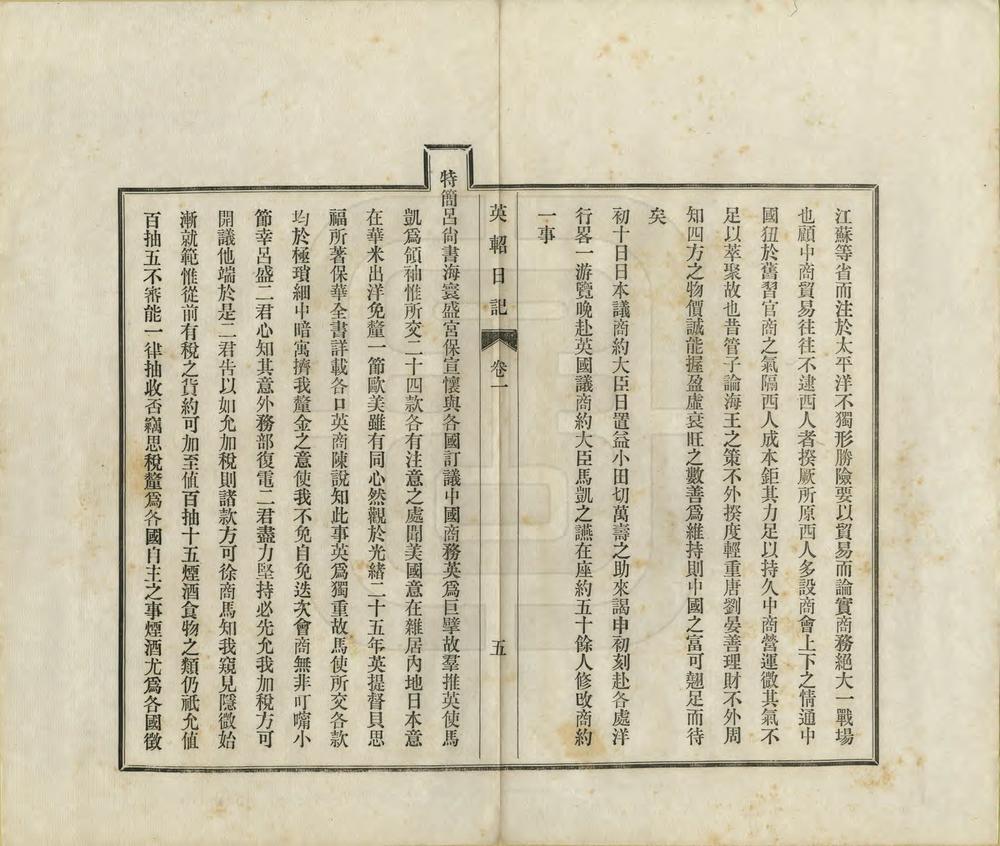 江蘇等省而注於太平洋不獨形勝險要以貿易而論實商務絕大一戰場
也顧中商貿易往往不逮西人者揆厥所原西人多設商會上下之情通中
國狃於舊習官商之氣隔西人成本鉅其力足以持久中商營運微其氣不
足以萃聚故也昔管子論海王之策不外揆度輕重唐劉晏善理財不外周
知四方之物價誠能握盈虛衰旺之數善爲維持則中國之富可翹足而待
矣
初十日日本議商約大臣日置益小田切萬壽之助來謁申初刻赴各處洋
行畧一游覽晚赴英國議商約大臣馬凱之讌在座約五十餘人修改商約
一事
英軺日記
卷一
五
特簡呂尙書海寰盛宮保宣懷與各國訂議中國商務英爲巨擘故羣推英使馬
凱爲領袖惟所交二十四款各有注意之處聞美國意在雜居內地日本意
在華米出洋免釐一節歐美雖有同心然觀於光緒二十五年英提督貝思
福所著保華全書詳載各口英商陳說知此事英爲獨重故馬使所交各款
均於極瑣細中暗寓擠我釐金之意使我不免自免迭次會商無非叮嚀小
節幸呂盛二君心知其意外務部復電二君盡力堅持必先允我加稅方可
開議他端於是二君告以如允加稅則諸款方可徐商馬知我窺見隱微始
漸就範惟從前有稅之貨約可加至値百抽十五煙酒食物之類仍祇允値
百抽五不審能一律抽收否竊思稅釐爲各國自主之事煙酒尤爲各國徵